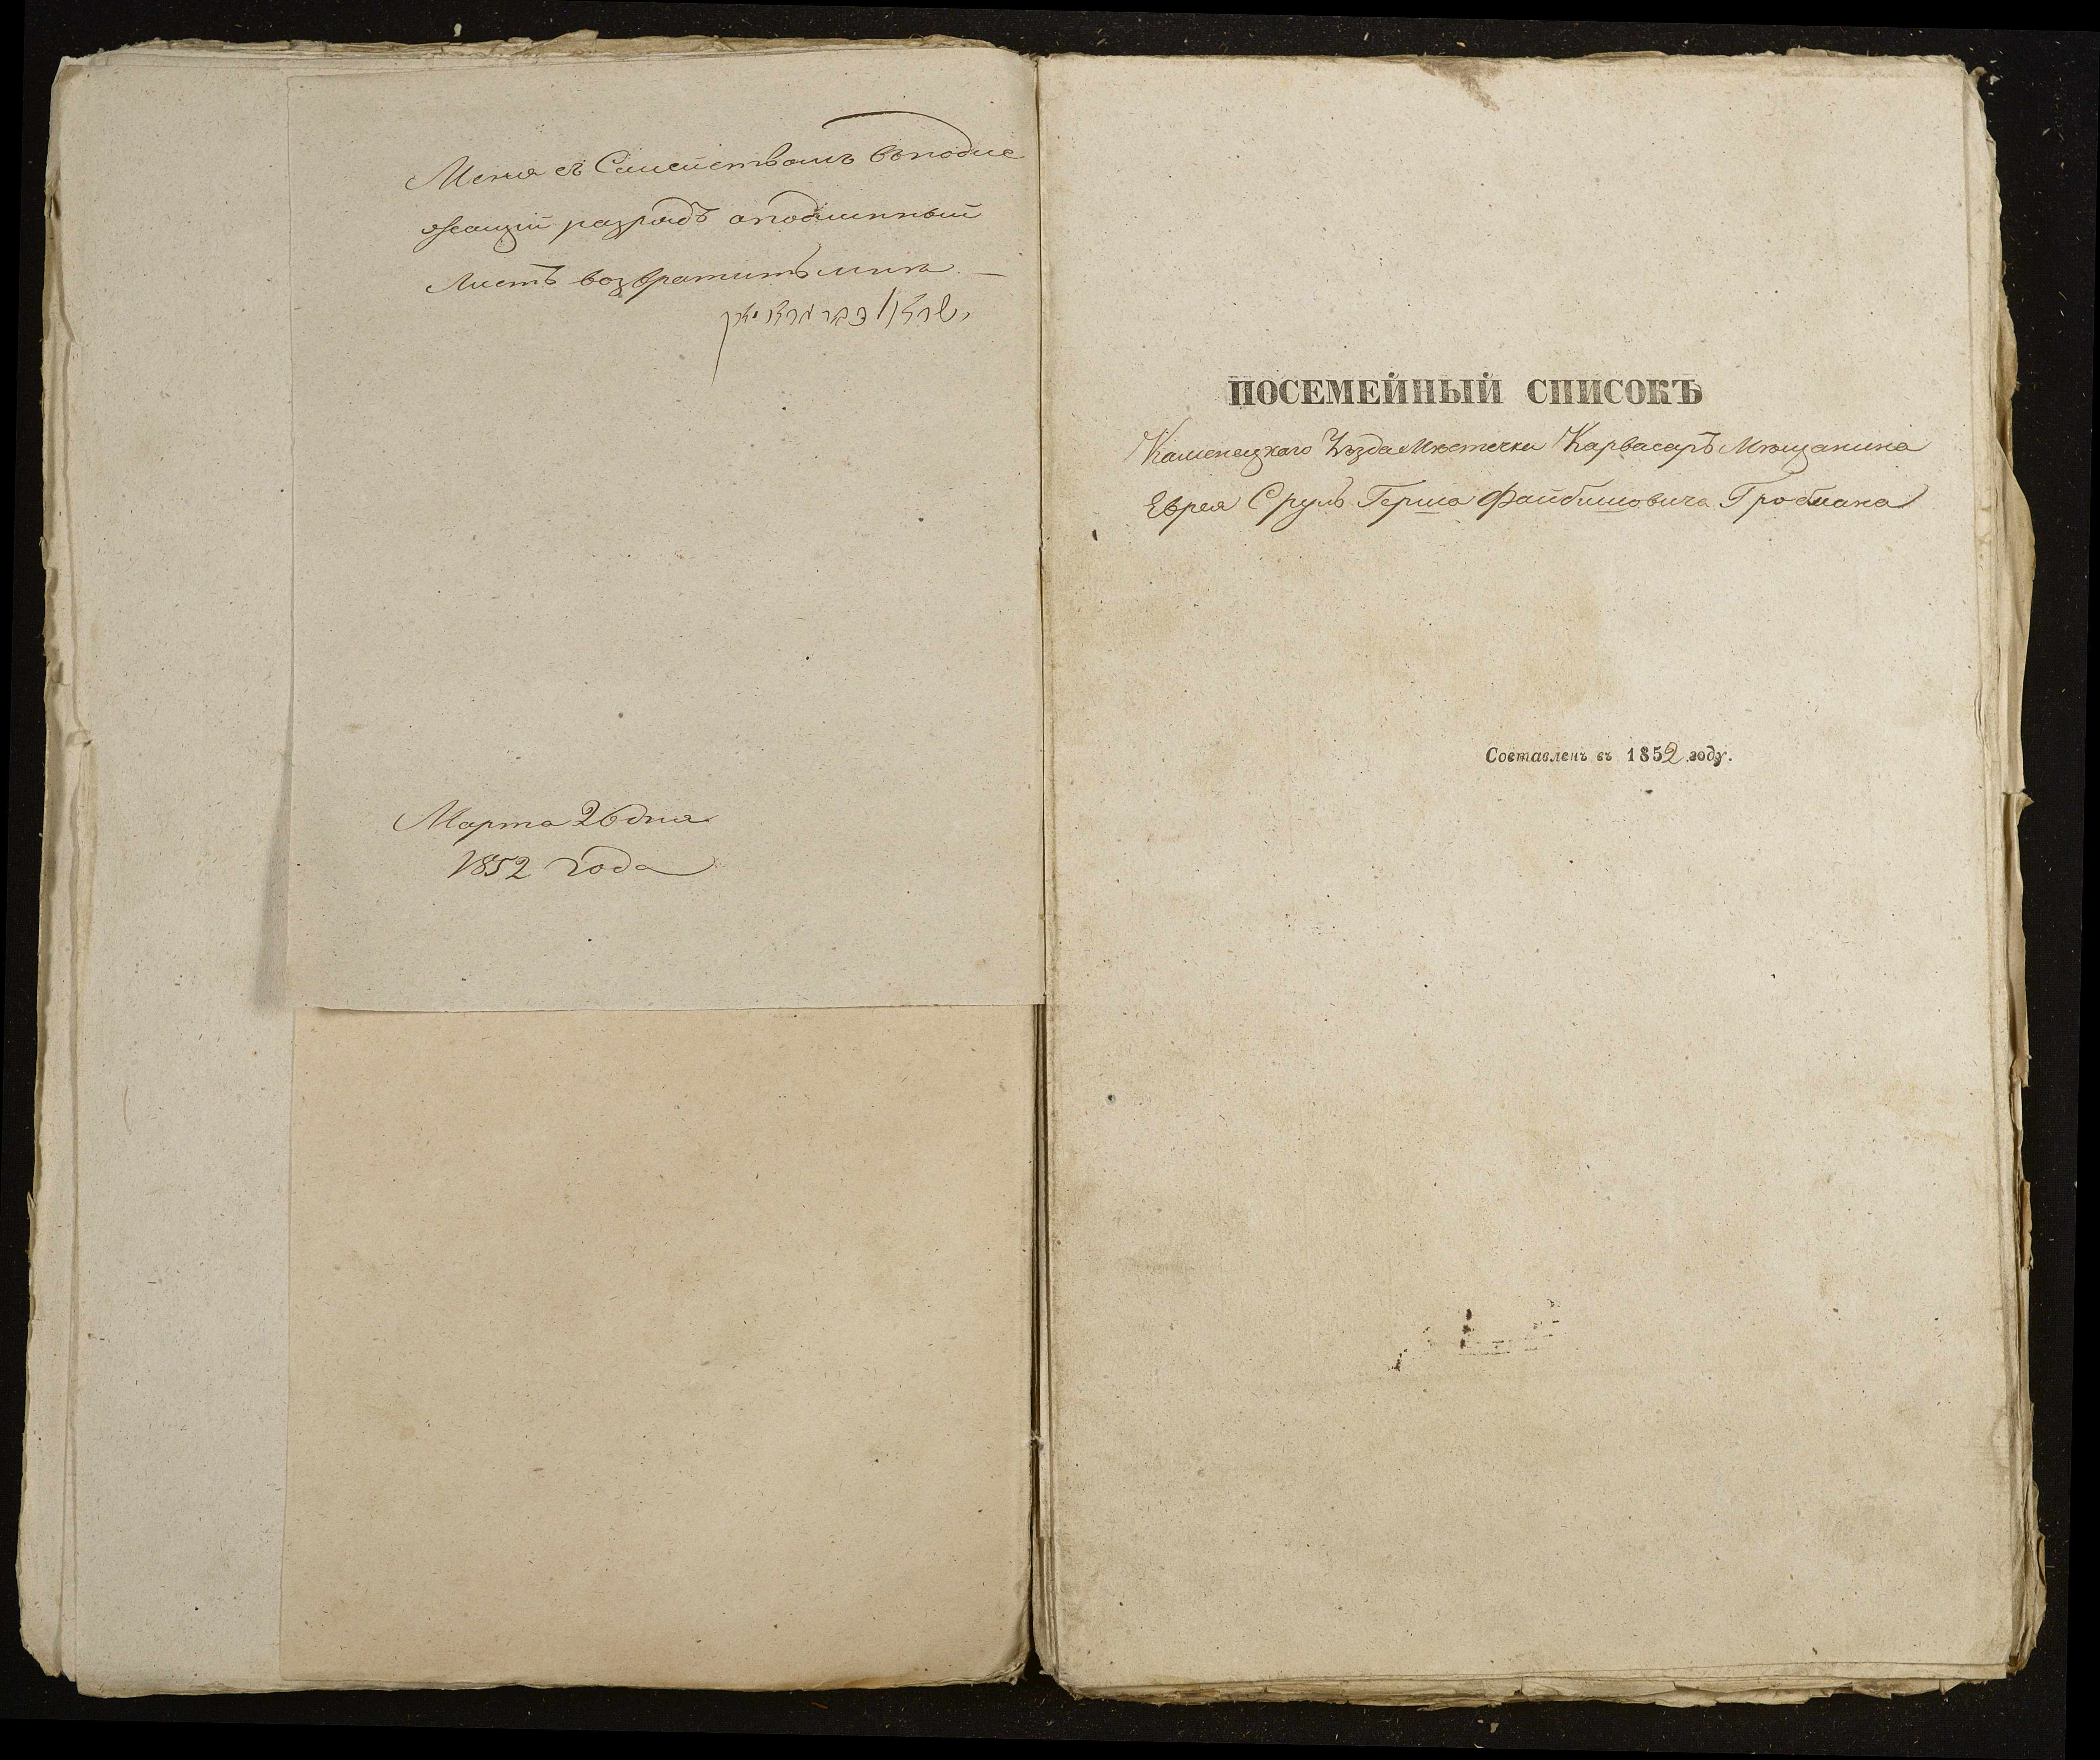 Меня съ Семействомъ въподле
жащій разрядъ аподлинный
Листъ возвратитьмнѣ. —
Марта 26 дня
1852 года
ПОСЕМЕЙНЫЙ СПИСОКЪ
Каменецкаго Уѣзда Мѣстечка Карвасаръ Мѣщанина
Еврея Сруль Герша Файбишовича Гробмана
Составленъ въ 1852 году.